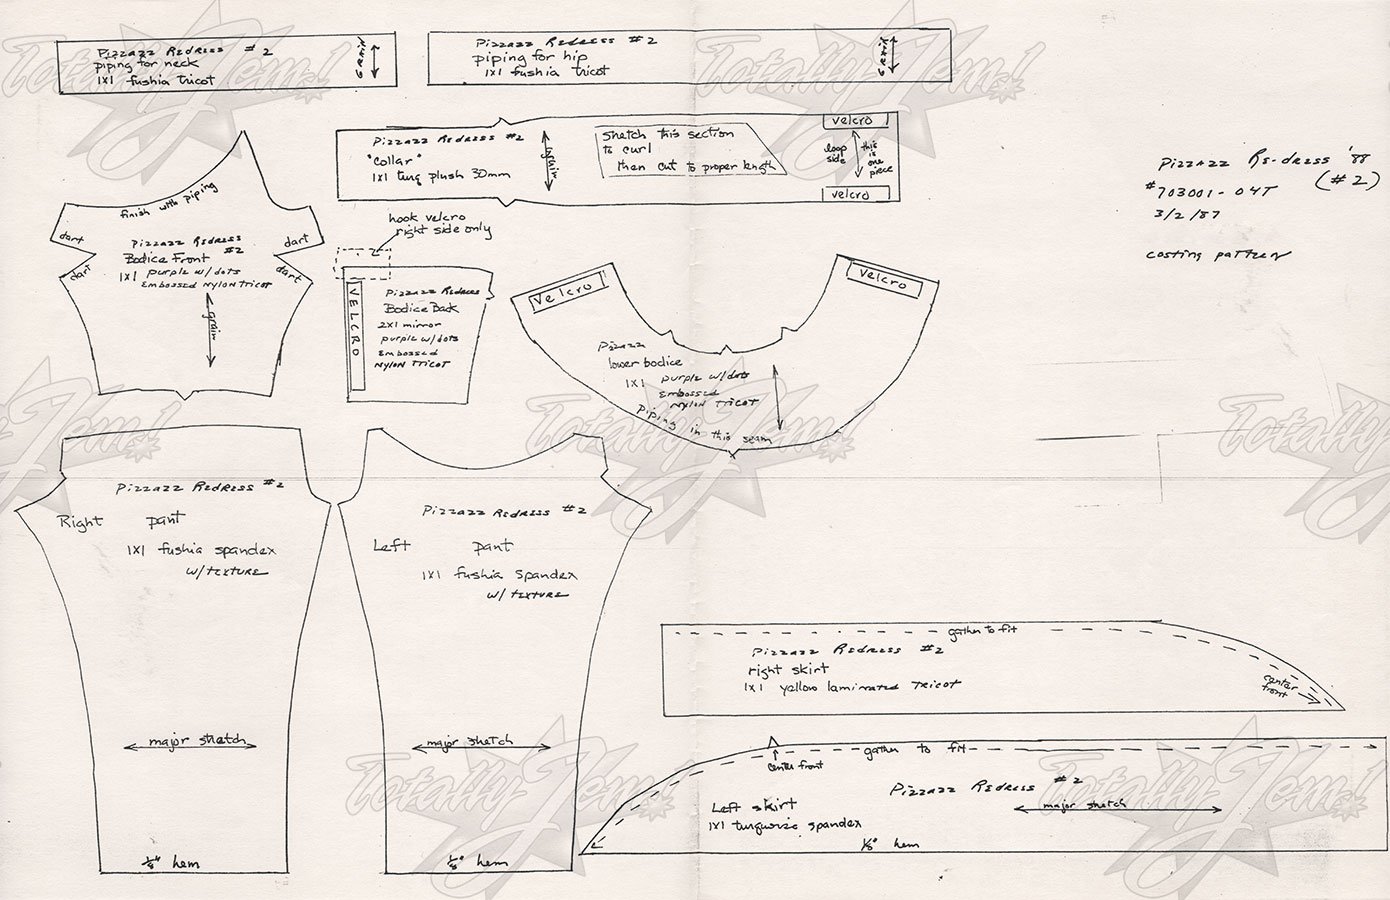 Pizzazz Redress #2
piping for neck
1X1 fushia tricot
Grain
Pizzazz Redress #2
piping for hip
1X1 fushia tricot
Grain
Pizzazz Redress #2
"Collar"
1X1 turq plush 30mm
grain
stretch this section
to curl
then cut to proper length
velcro
loop
side
this
is
one
piece
velcro
Pizzazz Re-dress '88
(#2)
#703001-04T
3/2/87
costing pattern
finish with piping
dart
dart
dart
dart
Pizzazz Redress
#2
Bodice Front
1X1 purple w/dots
Embossed Nylon Tricot
grain
hook velcro
right side only
VELCRO
Pizzazz Redress
Bodice Back
2X1 mirror
purple w/dots
Embossed
Nylon Tricot
Velcro
Velcro
Pizzazz
lower bodice
1X1 purple w/dots
Embossed
Nylon Tricot
piping in this seam
Pizzazz Redress #2
Right pant
1X1 fushia spandex
w/texture
major stretch
1/8" hem
Pizzazz Redress #2
Left pant
1X1 fushia spandex
w/texture
major stretch
1/8" hem
gather to fit
Pizzazz Redress #2
right skirt
1X1 yellow laminated tricot
center
front
gather to fit
center front
Pizzazz Redress #2
Left skirt
major stretch
1X1 turqwize spandex
1/8" hem
Totally Jem!
Totally Jem!
Totally Jem!
Totally Jem!
Totally Jem!
Totally Jem!